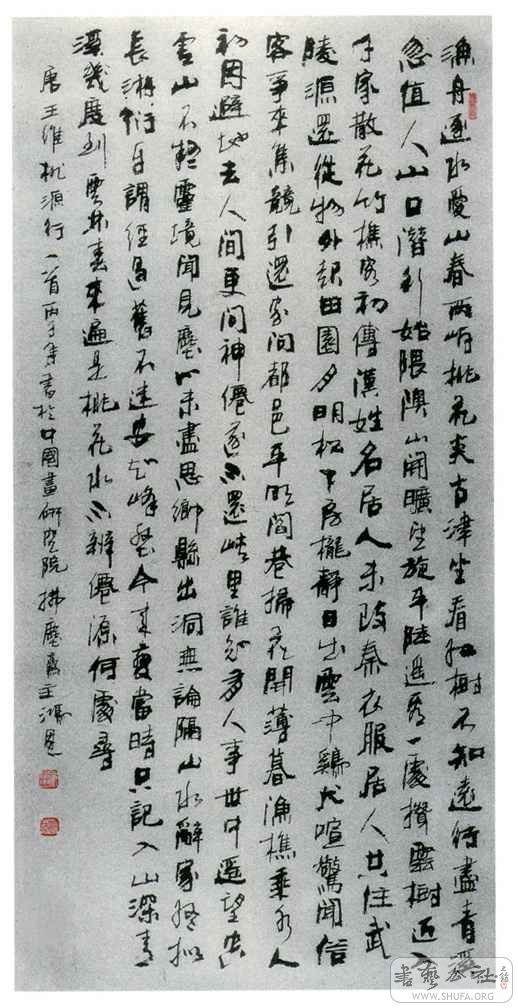 漁舟逐水愛山春兩岸桃花夾古津坐看紅樹不知遠行盡青溪
忽值人山口潛行始隈隩山開曠望旋平陸遙看一處攢雲樹近入
千家散花竹樵客初傳漢姓名居人未改秦衣服居人共住武
陵源還從物外起田園月明松下房櫳靜日出雲中鷄犬喧驚聞俗
客爭來集競引還家問都邑平明閭巷掃花開薄暮漁樵乘水入
初因避地去人間更問神僊遂不還峽里誰知有人事世中遙望空
雲山不疑靈境聞見塵心未盡思鄉縣出洞無論隔山水辭家終擬
長游衍自謂經過舊不迷安知峰壑今來變當時只記入山深青
溪幾度到雲林春來遍是桃花水不辨僊源何處尋
唐王維桃源行一首丙子年書於中國畫研究院拂塵齋主鴻
WWW.SHUFA.ORG